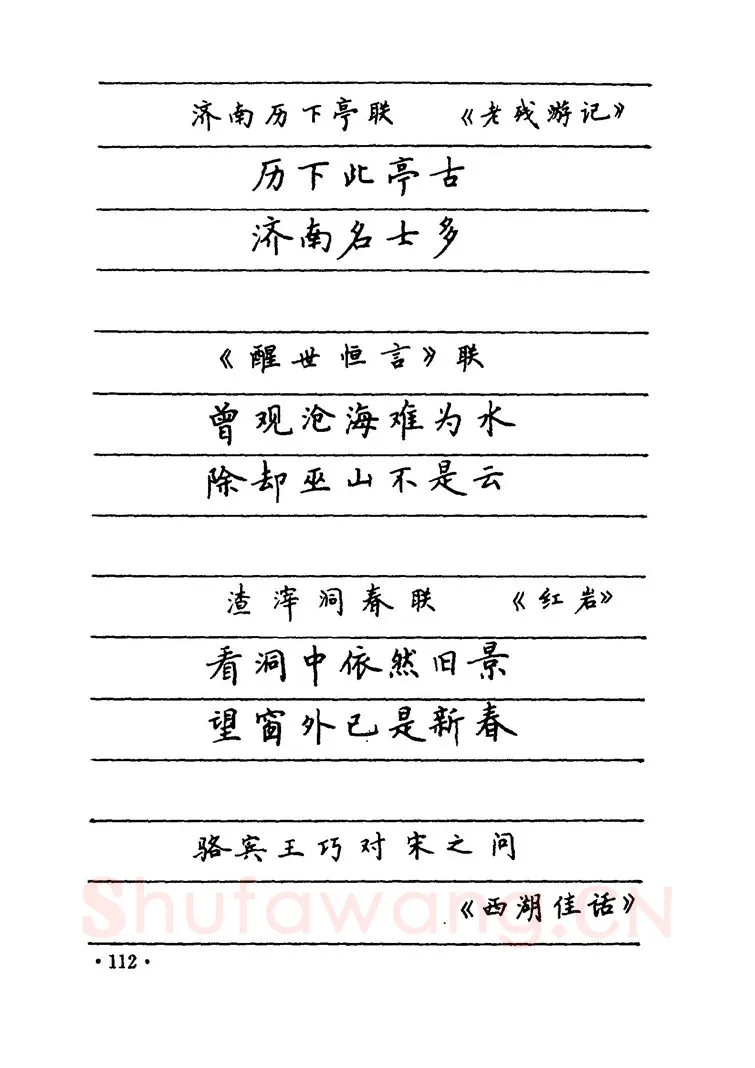 济南历下亭联 《老残游记》
历下此亭古
济南名士多
《醒世恒言》联
曾观沧海难为水
除却巫山不是云
渣滓洞春联 《红岩》
看洞中依然旧景
望窗外已是新春
骆宾王巧对宋之问
《西湖佳话》
Shufawang.CN
·112·